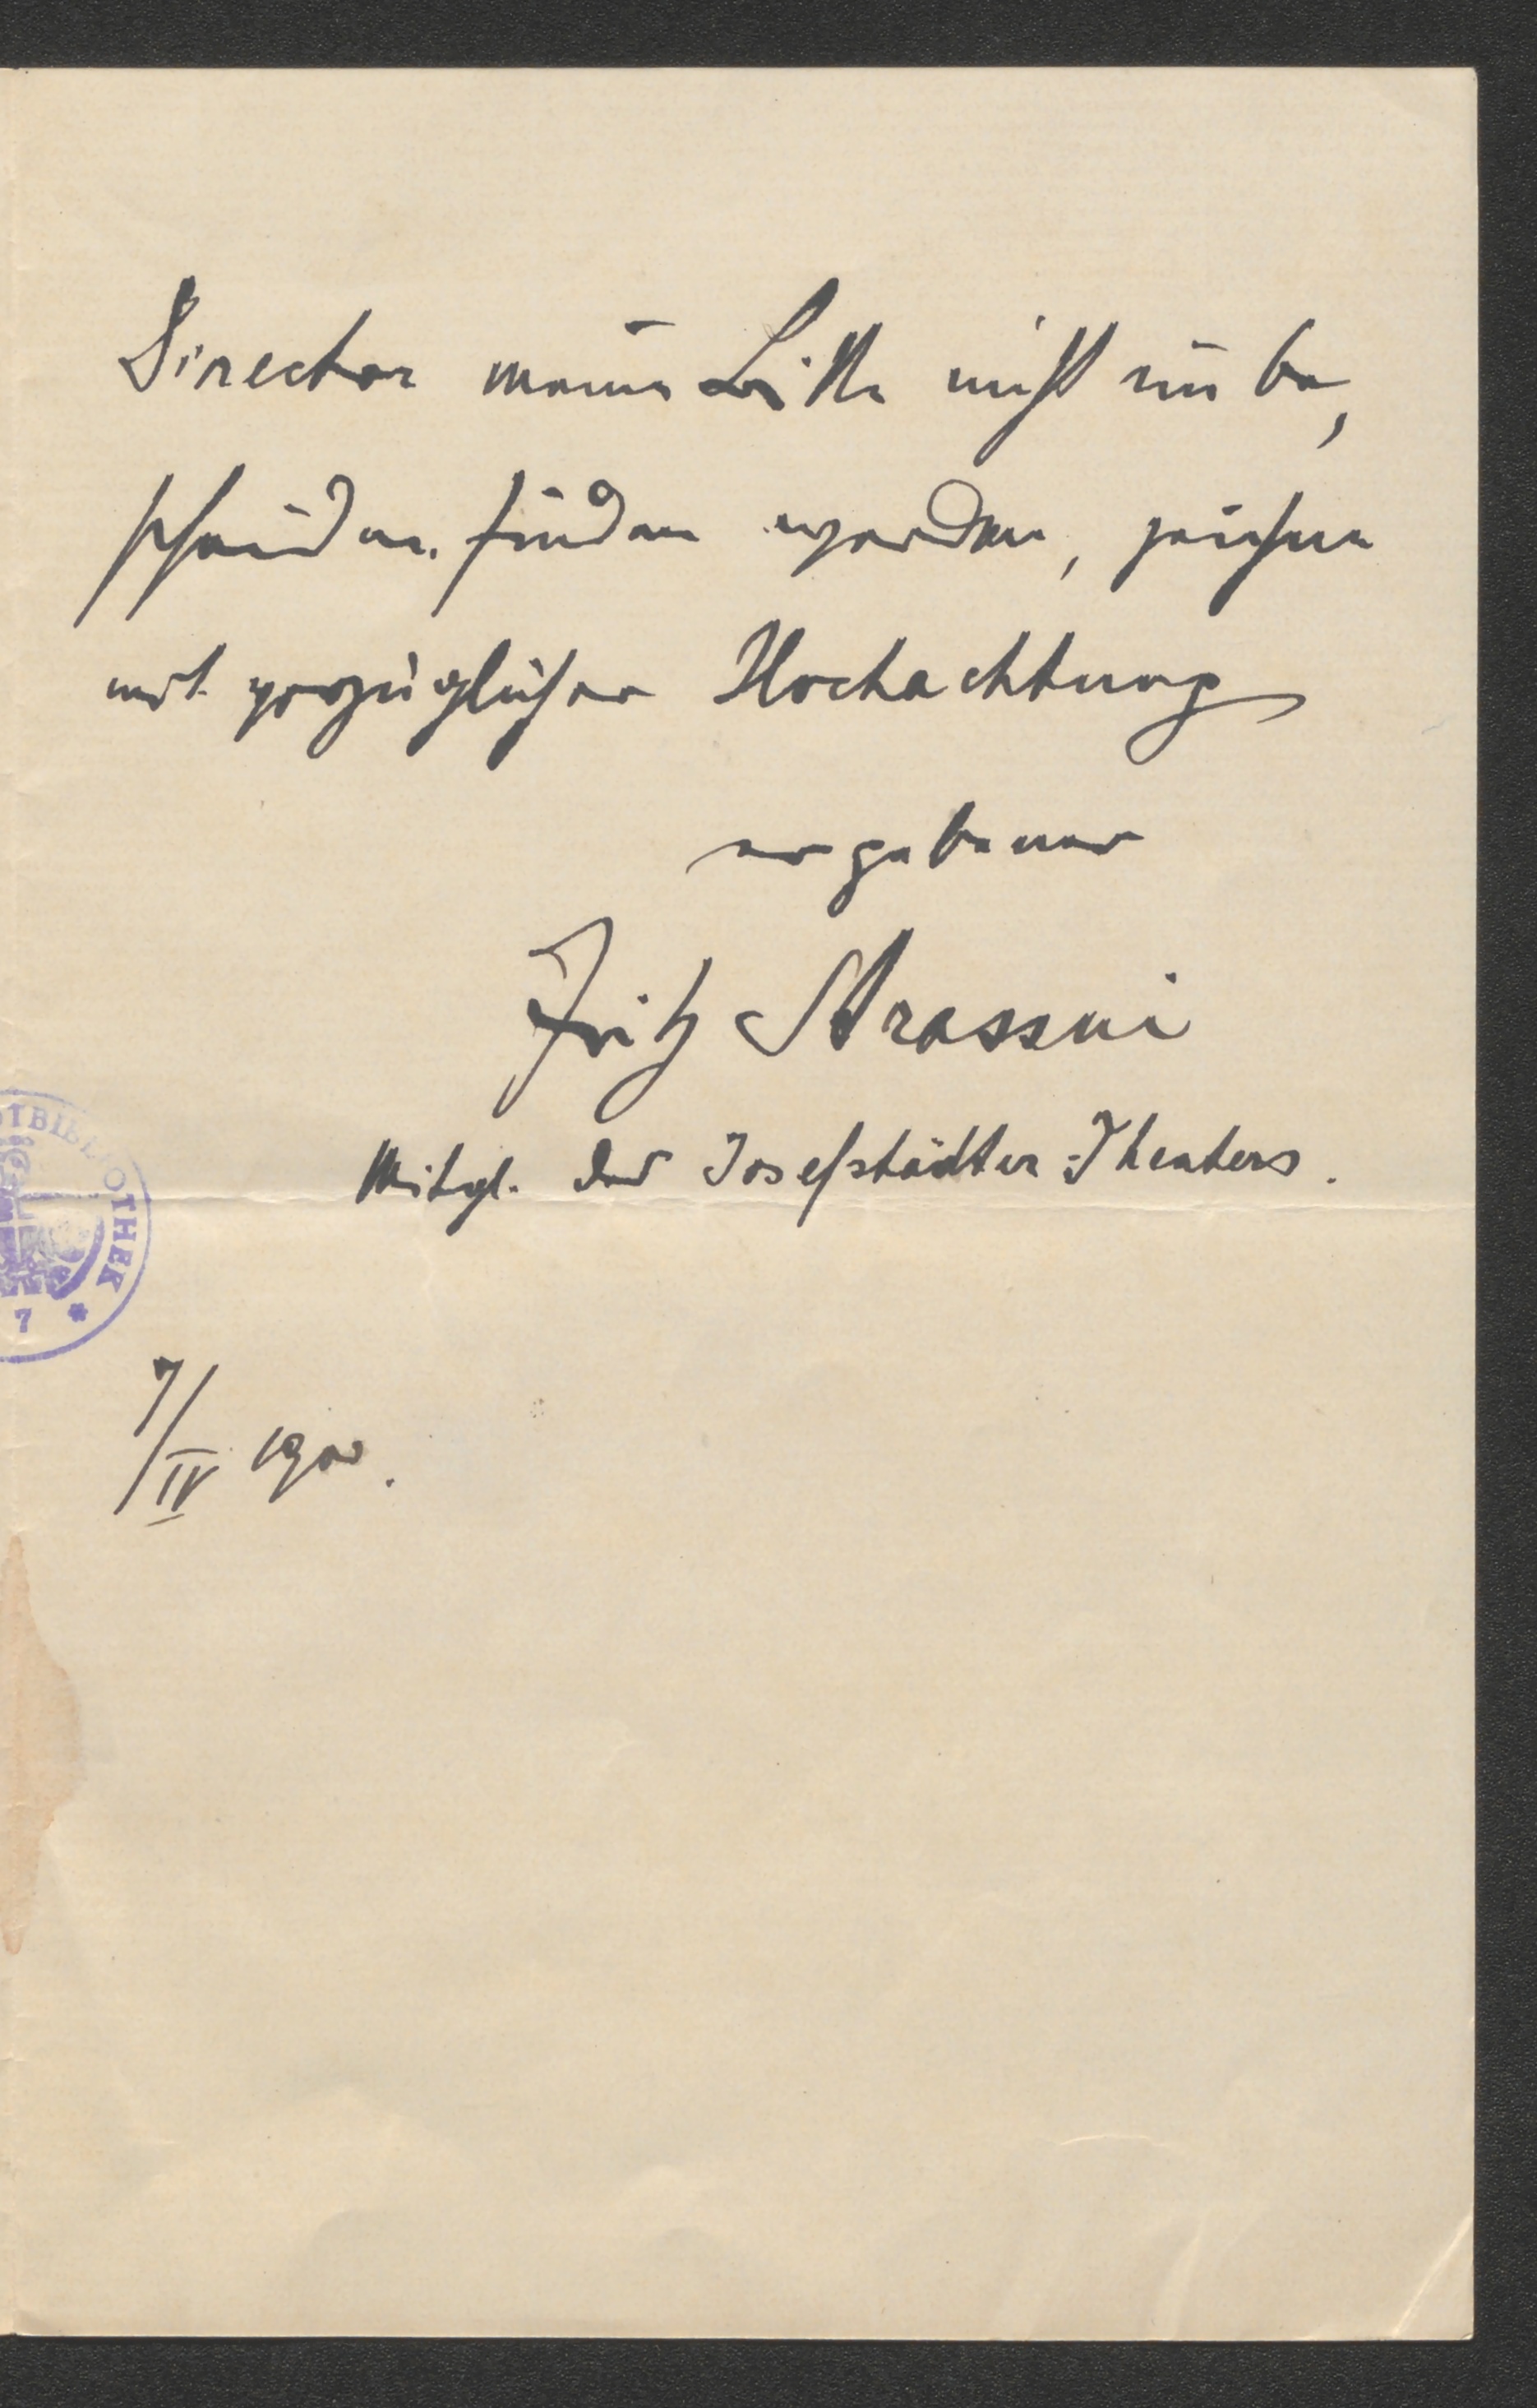 Director meine Bitte nicht unbe,
scheiden finden werden, zeichne
mit vorzüglicher Hochachtung
ergebener
Fritz Strassni
Mitgl. des Josefstädter-Theaters.
OTHEK
7 *
7/IV 1900.